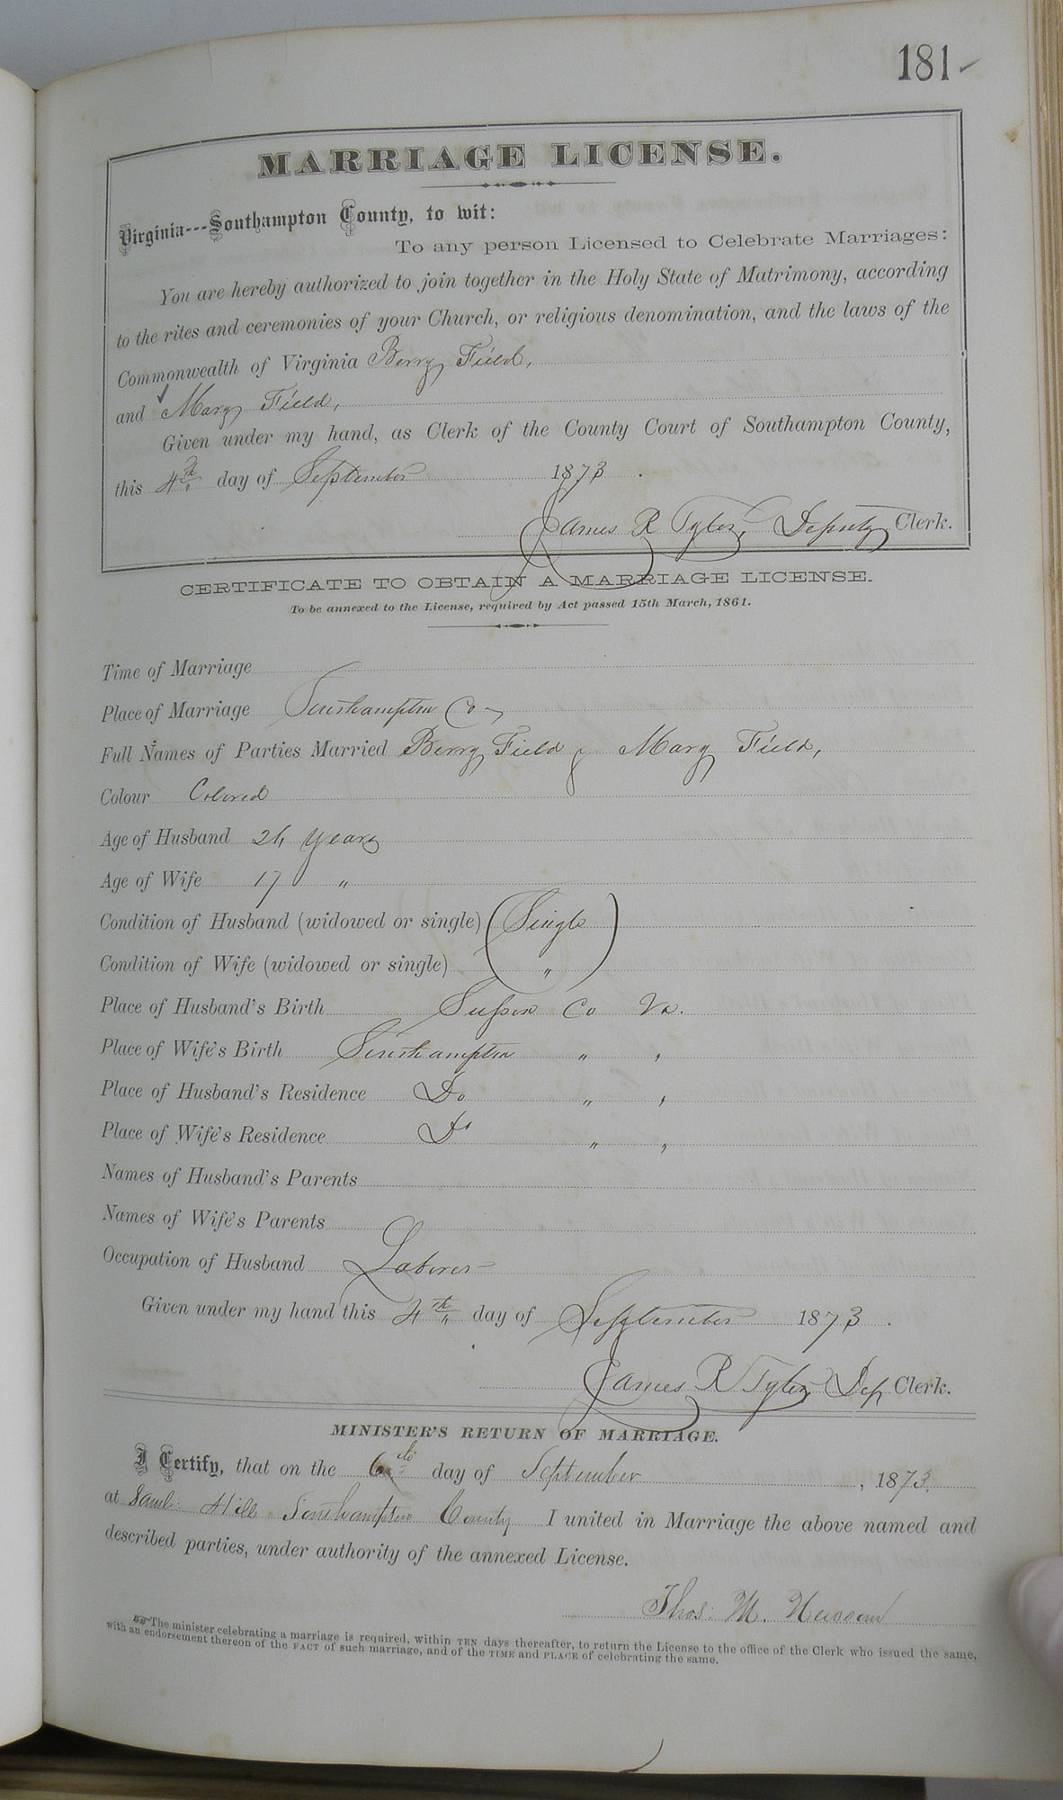 181
MARRIAGE LICENSE.
Virginia---Southampton County, to wit:
To any person Licensed to Celebrate Marriages:
You are hereby authorized to join together in the Holy State of Matrimony, according
to the rites and ceremonies of your Church, or religious denomination, and the laws of the
Commonwealth of Virginia Berry Field,
and Mary Field,
Given under my hand, as Clerk of the County Court of Southampton County,
this 4th day of September 1873.
James R Tyler, Deputy Clerk.
CERTIFICATE TO OBTAIN A MARRIAGE LICENSE.
To be annexed to the License, required by Act passed 15th March, 1861.
Time of Marriage
Place of Marriage Southampton Co
Full Names of Parties Married Berry Field & Mary Field,
Colour Colored
Age of Husband 24 years
Age of Wife 17 "
Condition of Husband (widowed or single) (Single)
Condition of Wife (widowed or single) "
Place of Husband's Birth Sussex Co Va.
Place of Wife's Birth Southampton " "
Place of Husband's Residence Do " "
Place of Wife's Residence Do " "
Names of Husband's Parents
Names of Wife's Parents
Occupation of Husband Laborer
Given under my hand this 4th day of September 1873.
James R Tyler Dep Clerk.
MINISTER'S RETURN OF MARRIAGE.
I Certify, that on the 6th day of September, 1873.
at Saml. Hill Southampton County I united in Marriage the above named and
described parties, under authority of the annexed License.
Thos. M.
The minister celebrating a marriage is required, within TEN days thereafter, to return the License to the office of the Clerk who issued the same,
with an endorsement thereon of the FACT of such marriage, and of the TIME and PLACE of celebrating the same.